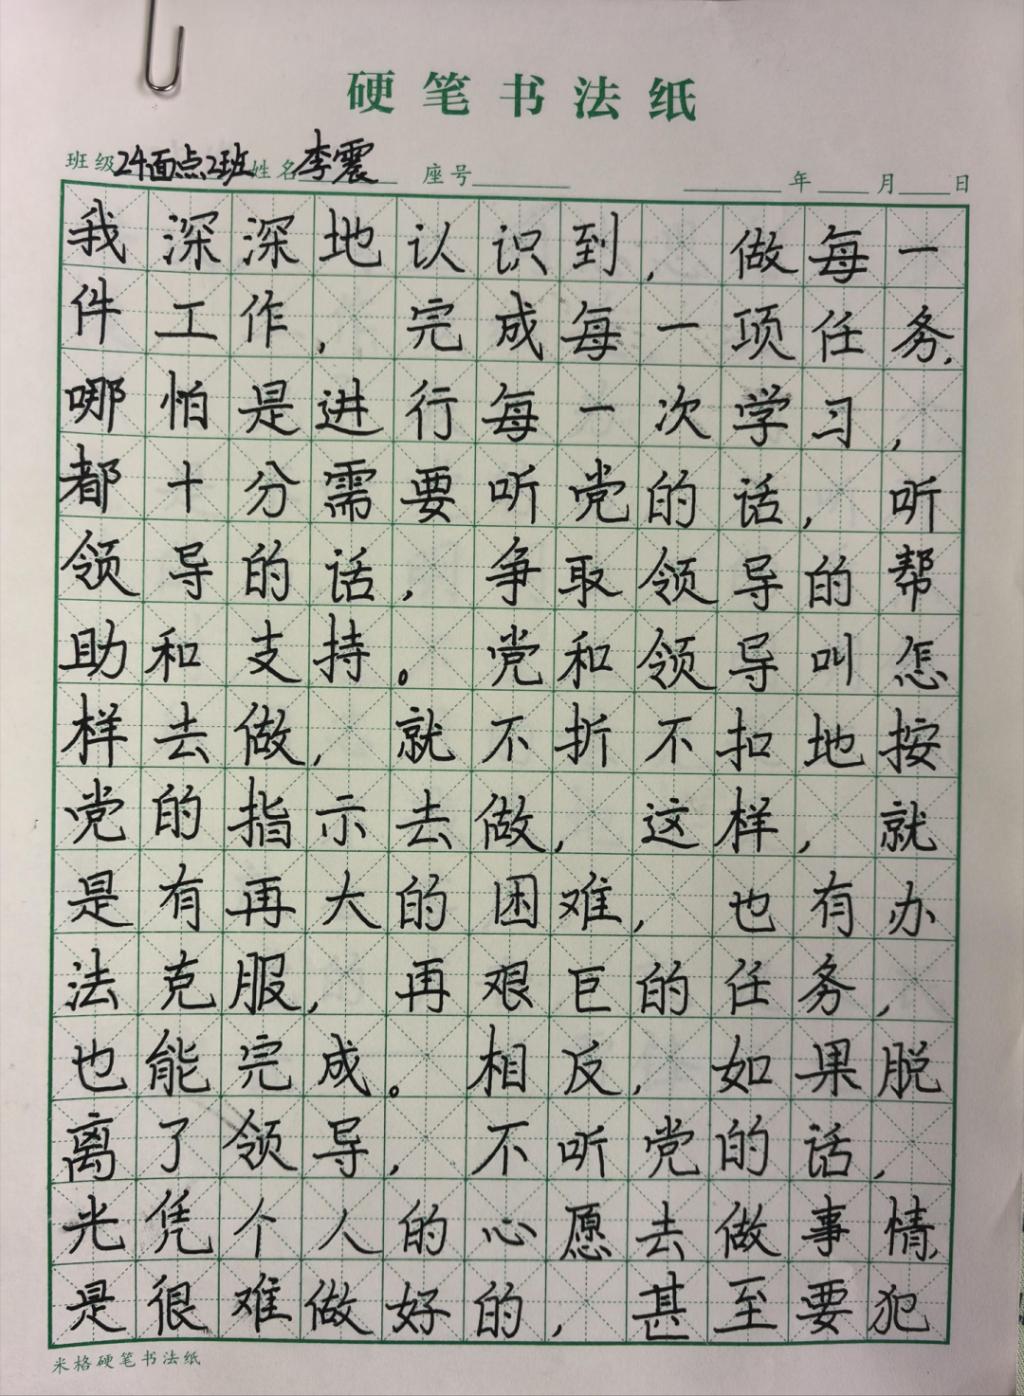 硬笔书法纸
班级 24面点2班 姓名 李震 座号 年 月 日
我深深地认识到，做每一
件工作，完成每一项任务，
哪怕是进行每一次学习，
都十分需要听党的话，听
领导的话，争取领导的帮
助和支持。党和领导叫怎
样去做，就不折不扣地按
党的指示去做，这样，就
是有再大的困难，也有办
法克服，再艰巨的任务，
也能完成。相反，如果脱
离了领导，不听党的话，
光凭个人的心愿去做事情，
是很难做好的，甚至要犯
米格硬笔书法纸